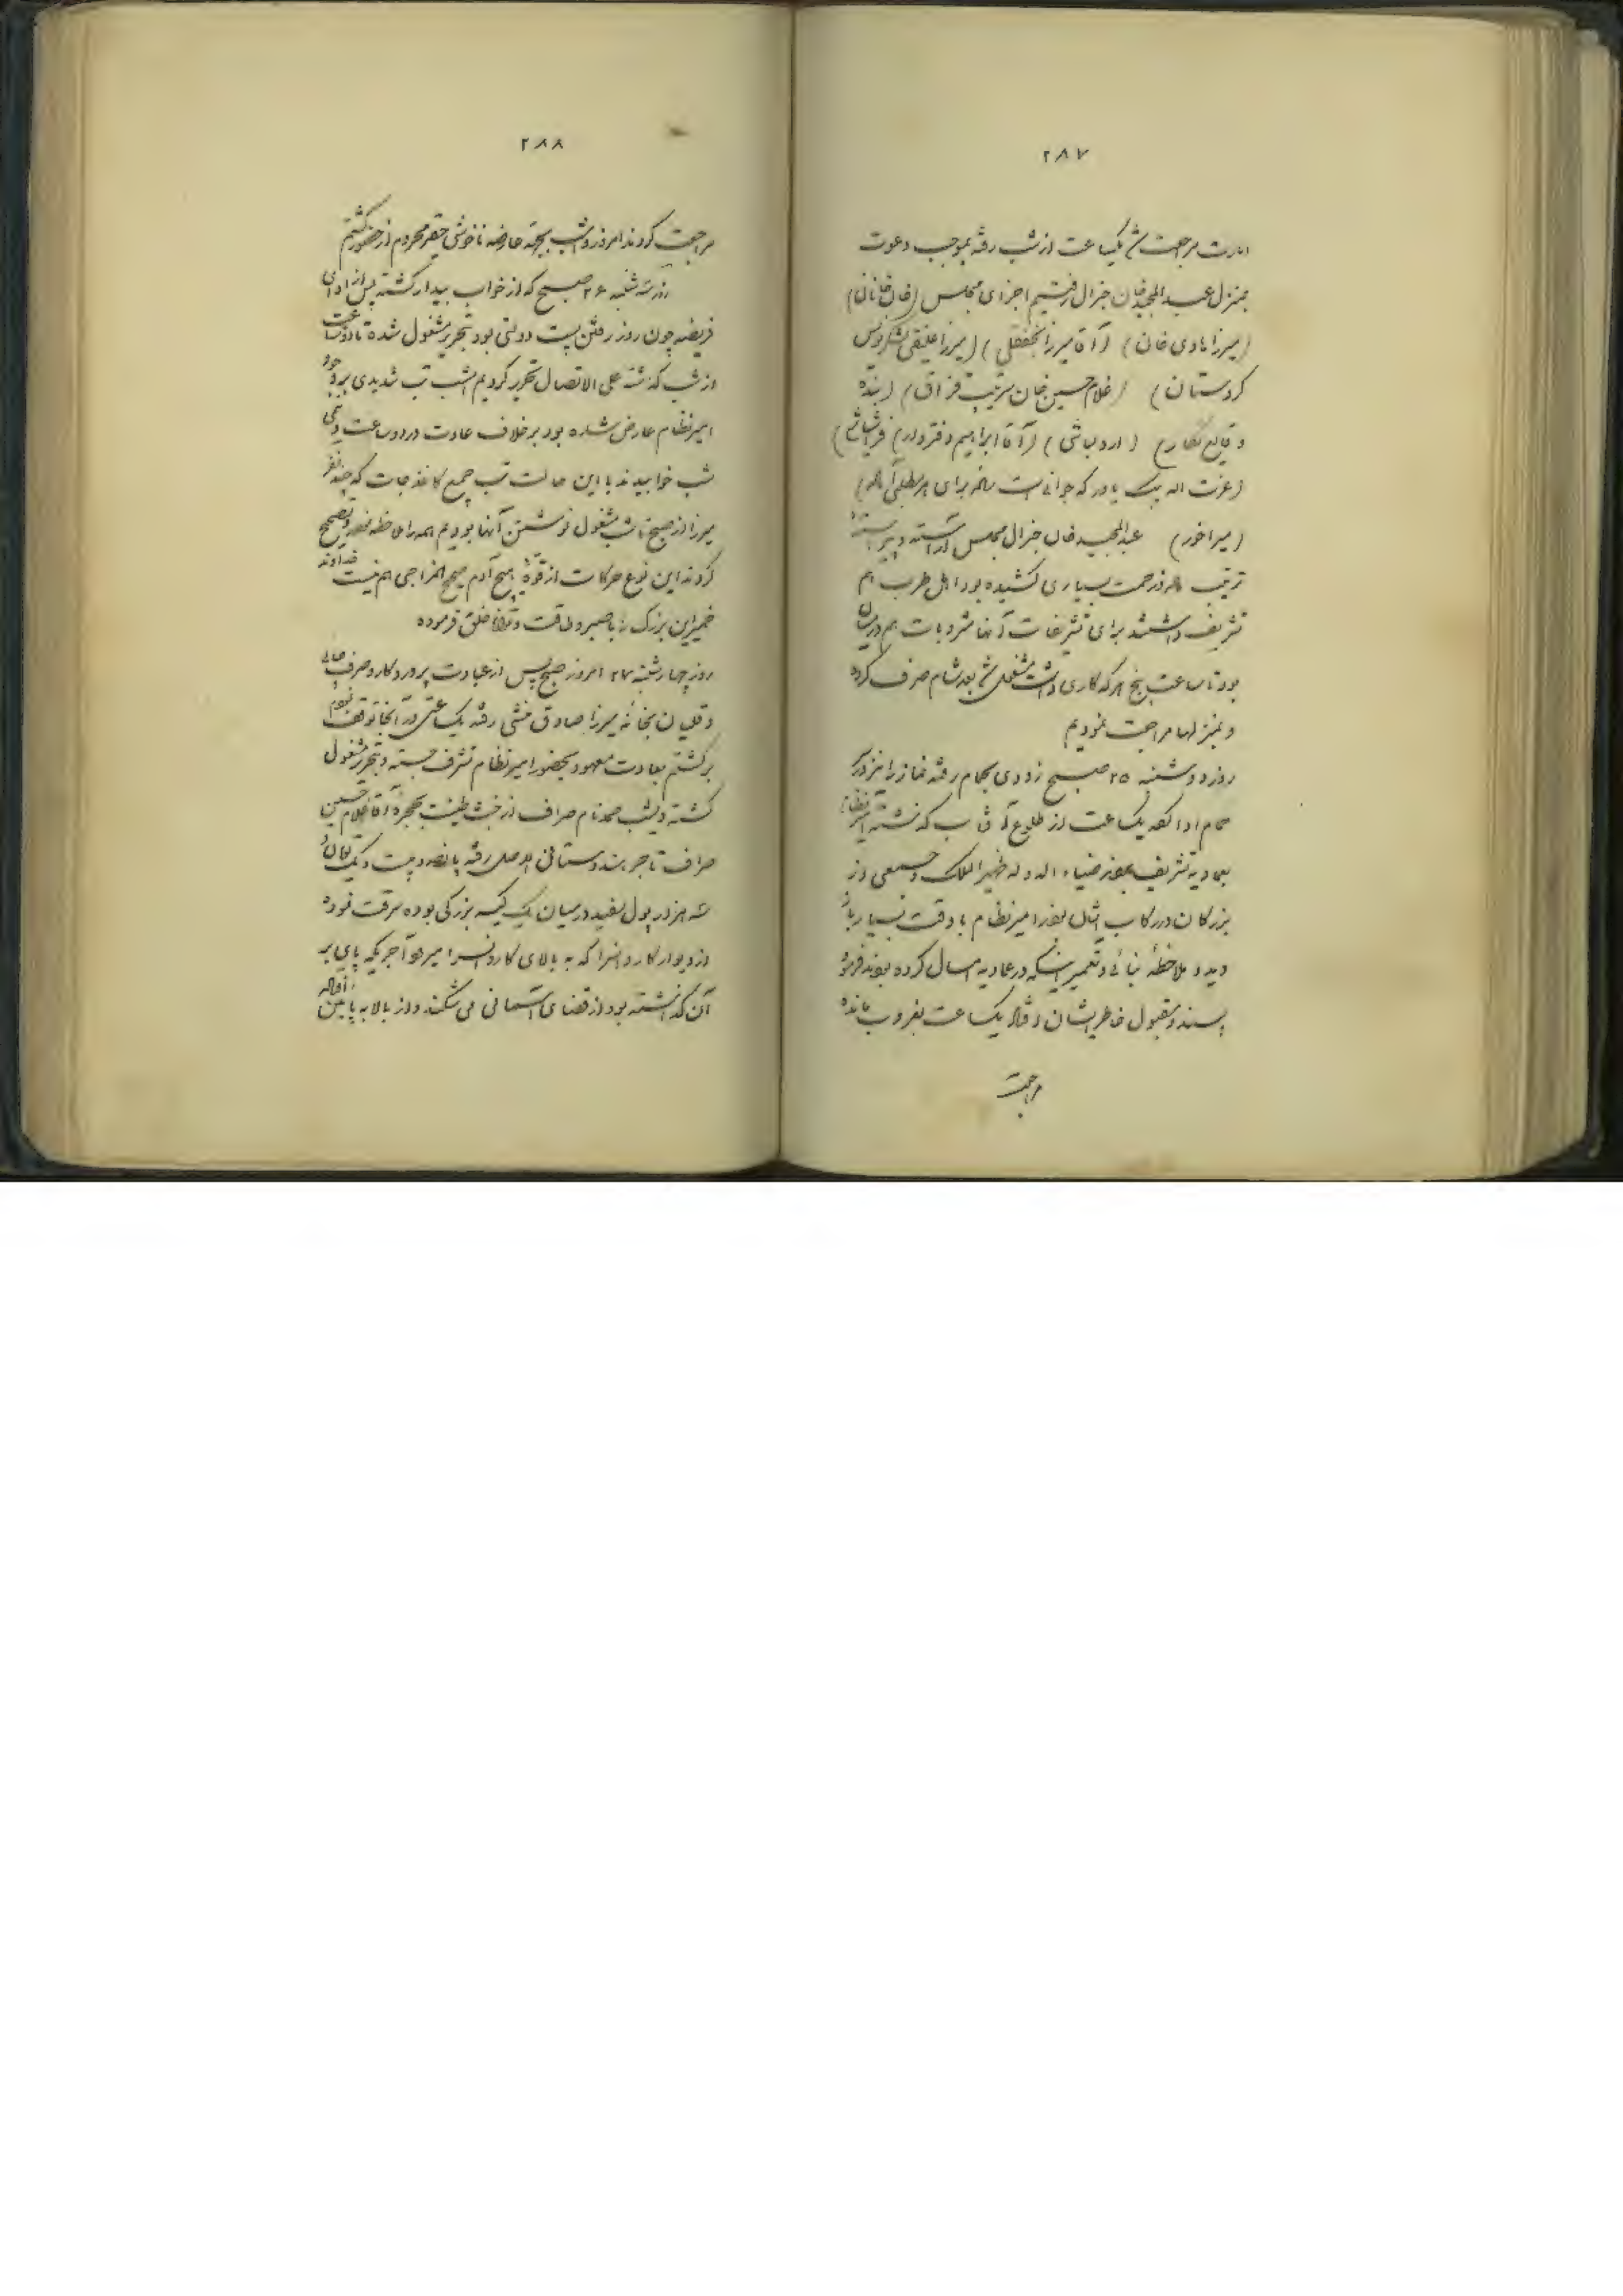 ۲۸۷
امارت مراجعت شد یکساعت از شب رفته بموجب دعوت
بمنزل عبدالمجید خان جنرال رفتیم اجزای مجلس (خان خانان)
(میرزا هادی خان) (آقا میرزا نجفقلی) (میرزا علینقی لشکرنویس
کردستان) (غلام حسین خان سرتیپ قزاق) (بنده
وقایع نگار) (اردو باشی) (آقا ابراهیم دفتردار)
(عزت اله بیک یاور که جوانی است
(میرآخور) عبدالمجید خان جنرال مجلس آراسته و پیراسته
ترتیب داده زحمت بسیاری کشیده بود اهل طرب هم
تشریف داشتند برای تشریفات آنها مشروبات هم در میان
بود تا ساعت پنج هر که کاری داشت مشغول شد بعد شام صرف کرده
و بمنزلها مراجعت نمودیم
روز دوشنبه ۲۵ صبح زودی بحمام رفته نماز را نیز در
حمام ادا کرده یکساعت از طلوع آفتاب که گذشته امیرنظام
بعمادیه تشریف بردند ضیاء الدوله ظهیر الملک و جمعی از
بزرگان در رکاب ایشان بودند امیرنظام با دقت بسیار
دید و ملاحظهٔ بنائی و تعمیراتیکه در عمادیه امسال کرده بودند فرمود
پسند و مقبول خاطر ایشان افتاد یکساعت بغروب مانده
مراجعت
۲۸۸
مراجعت کردند امروز و امشب بجهة عارضه ناخوشی حقیر محروم از حضور گشتم
روز سه شنبه ۲۶ صبح که از خواب بیدار گشته پس از ادای
فریضه چون روز رفتن پست دولتی بود بتحریر مشغول شده تا دو ساعت
از شب گذشته علی الاتصال تحریر کردیم امشب تب شدیدی بر وجود
امیرنظام عارض شده بود بر خلاف عادت در دو ساعت و نیمی
شب خوابیدند با این حالت تب جمیع کاغذجات که چند نفر
میرزا از صبح تا شب مشغول نوشتن آنها بودیم همه را ملاحظه فرموده و تصحیح
کردند این نوع حرکات از قوهٔ هیچ آدم صحیح المزاجی هم نیست خداوند
خمیر این بزرگ را با صبر و طاقت و توانا خلق فرموده
روز چهارشنبه ۲۷ امروز صبح پس از عبادت پروردگار و صرف چای
و قلیان بخانه میرزا صادق منشی رفته یک ساعتی در آنجا توقف نمودم
برگشتم بعادت معهود بحضور امیرنظام تشرف جسته و بتحریر مشغول
گشته دیشب صمد نام صراف از خبث طینت بحجرهٔ آقا غلام حسین
صراف تاجر هندوستانی الاصل رفته پانصد و بیست و یک تومان و
سه هزار پول سفید در میان یک کیسه بزرگی بوده سرقت نموده
از دیوار کاروانسرا که به بالای کاروانسرا میرفته آجریکه پای بر
آن گذاشته بود از قضای آسمانی می شکند و از بالا به پایین افتاده